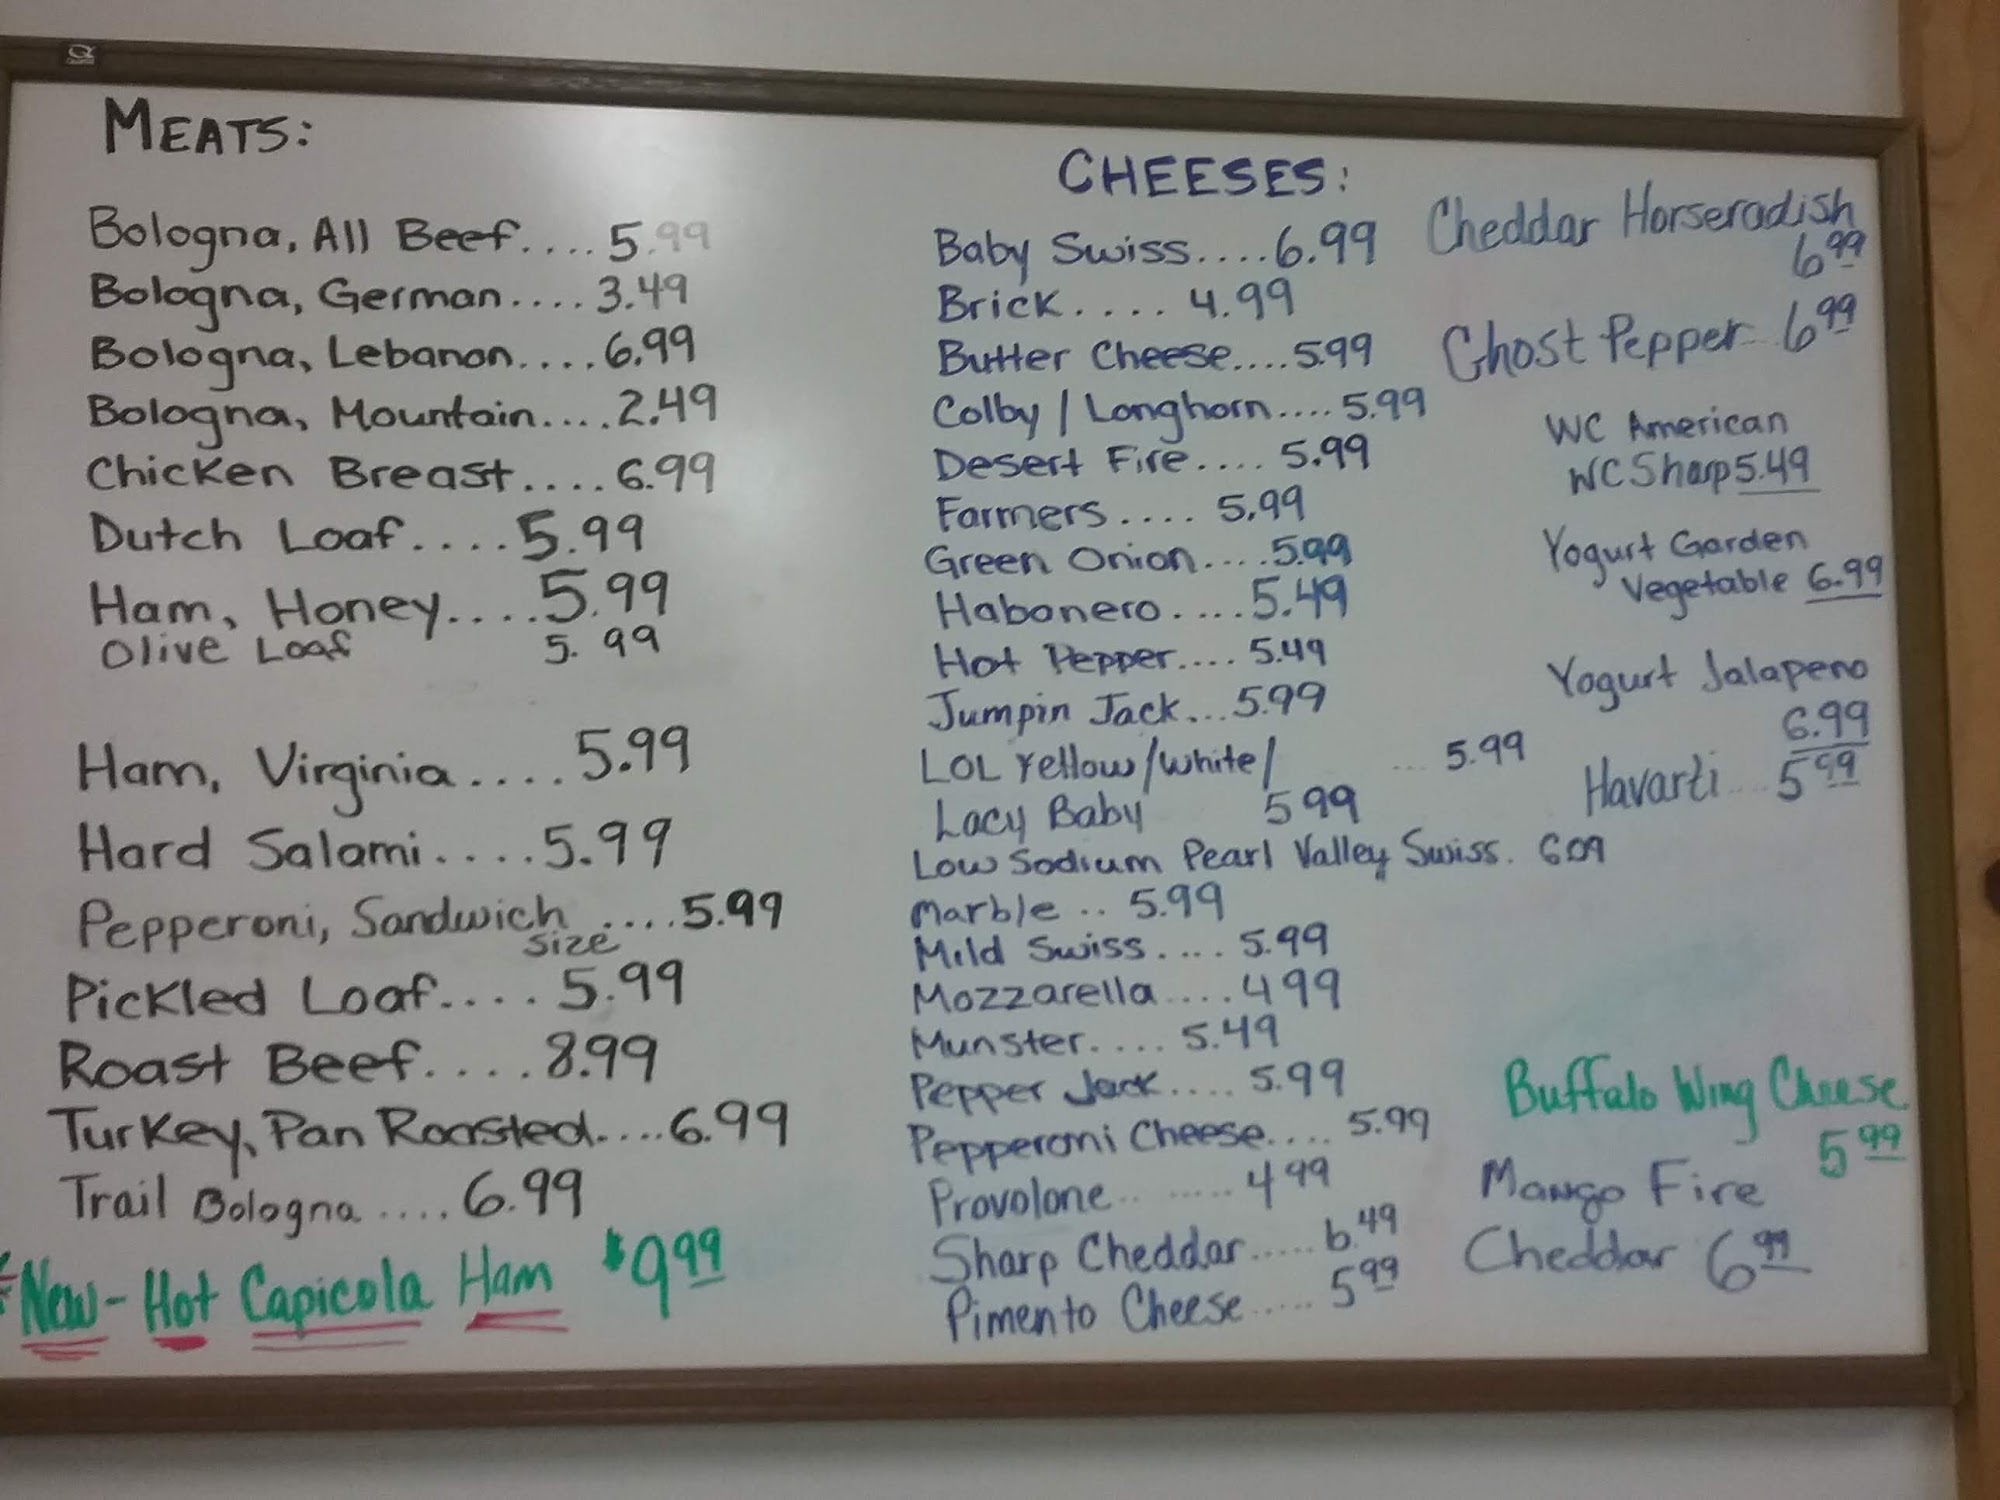 MEATS:
Bologna, All Beef....5.99
Bologna, German....3.49
Bologna, Lebanon....6.99
Bologna, Mountain....2.49
Chicken Breast....6.99
Dutch Loaf....5.99
Ham, Honey....5.99
Olive Loaf 5.99
Ham, Virginia....5.99
Hard Salami....5.99
Pepperoni, Sandwich ....5.99
size
Pickled Loaf....5.99
Roast Beef....8.99
Turkey, Pan Roasted....6.99
Trail Bologna....6.99
New-Hot Capicola Ham $9.99
CHEESES:
Baby Swiss....6.99
Brick....4.99
Butter Cheese....5.99
Colby/Longhorn....5.99
Desert Fire....5.99
Farmers....5.99
Green Onion....5.99
Habonero....5.49
Hot Pepper....5.49
Jumpin Jack...5.99
LOL Yellow/White/ ...5.99
Lacy Baby 5 99
Low Sodium Pearl Valley Swiss.
Marble..5.99
Mild Swiss....5.99
Mozzarella....4 99
Munster....5.49
Pepper Jack....5.99
Pepperoni Cheese....5.99
Provolone.......4 99
Sharp Cheddar.....6.49
Pimento Cheese.....5 99
Cheddar Horseradish
6 99
Ghost Pepper- 6 99
WC American
WC Sharp 5.49
Yogurt Garden
Vegetable 6.99
Yogurt Jalapeno
6.99
Havarti...5 99
Buffalo Wing Cheese
5 99
Mango Fire
Cheddar 6 99